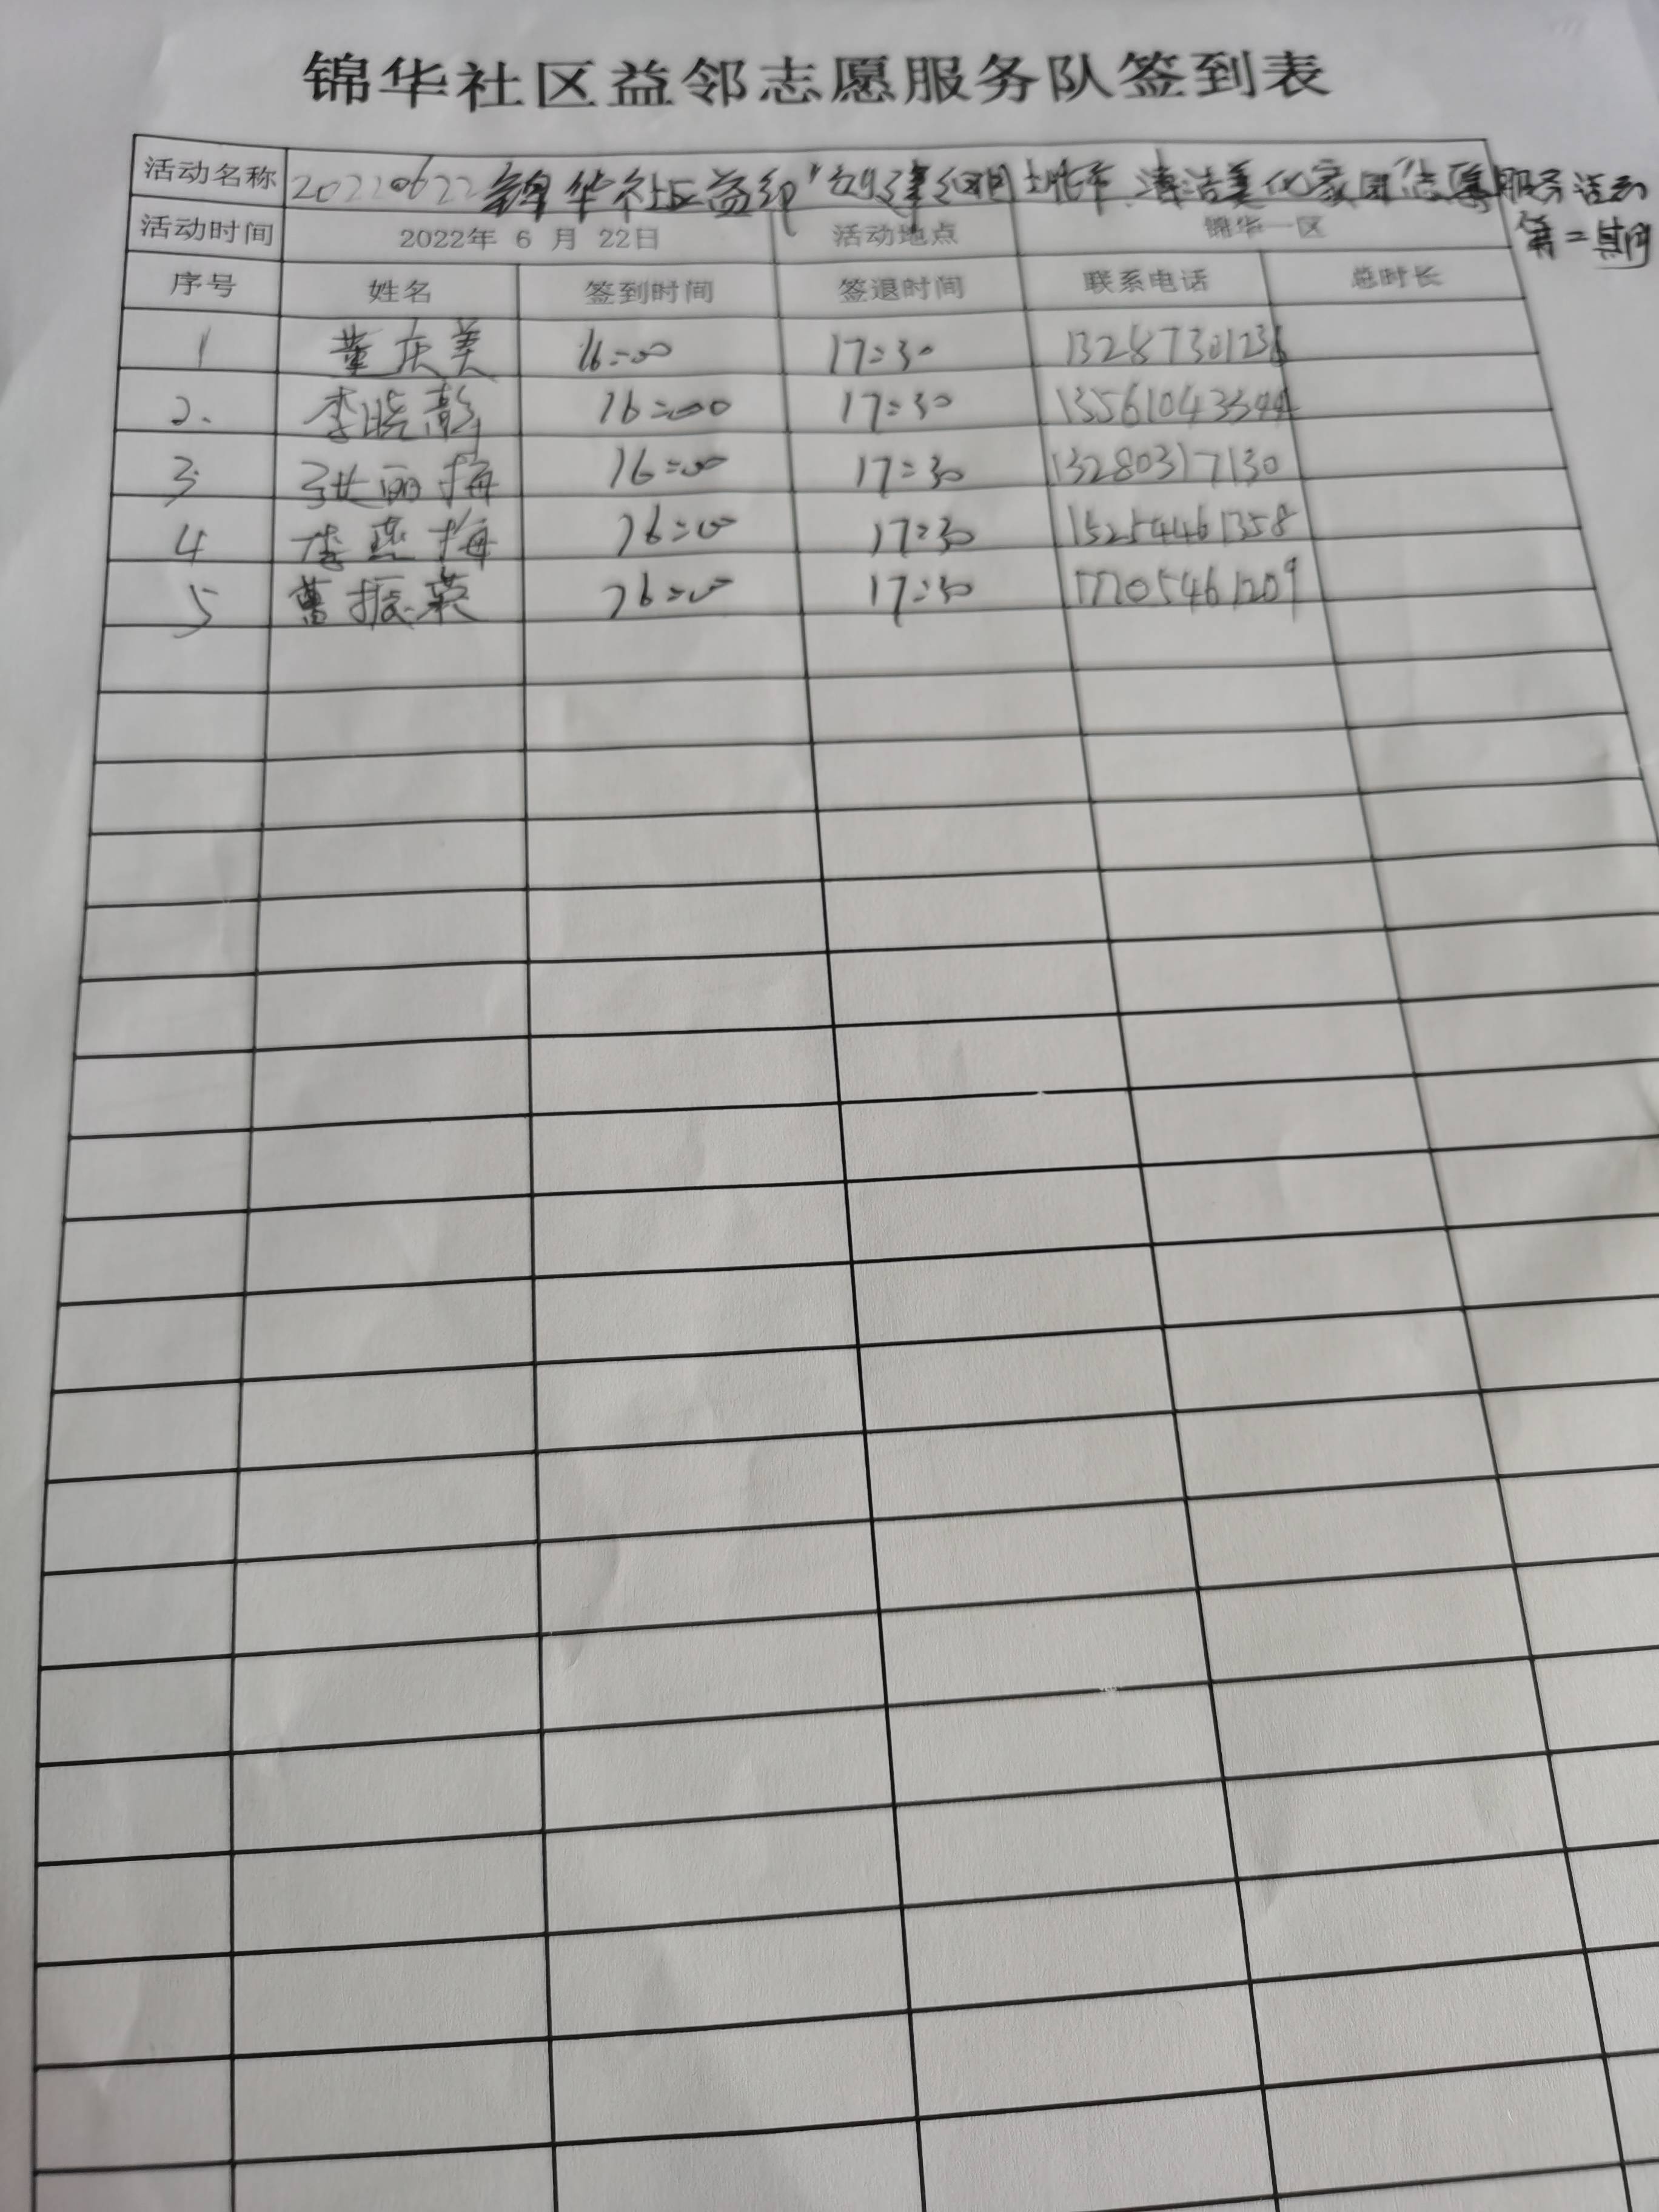 锦华社区益邻志愿服务队签到表
活动名称 20220622锦华社区益邻"创建文明城市 清洁美化家园志愿服务活动
第二期
活动时间 2022年 6 月 22日 活动地点 锦华一区
序号 姓名 签到时间 签退时间 联系电话 总时长
1 董庆美 16:00 17:30 13287301236
2. 李晓 16:00 17:30 13561043344
3. 张丽梅 16:00 17:30 13280317130
4 李燕梅 16:00 17:30 15254461358
5 曹振英 16:00 17:30 17705461209